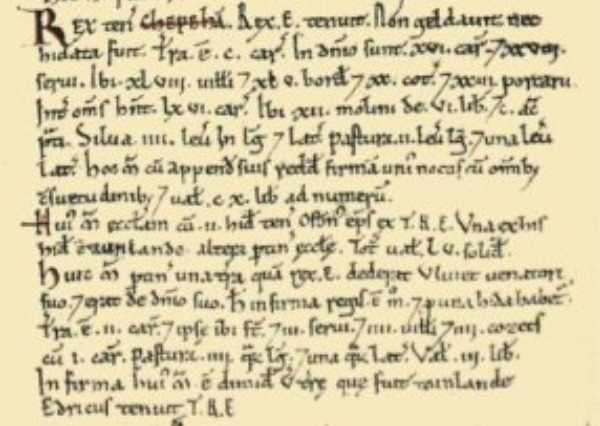 Rex ten̄ Chepehā. Rex. E. tenuit. Non geldauit nec
hidata fuit. Tr̄a. ē. c. car̄. In dn̄io sunt. xvi. car̄. ⁊ xxviii.
serui. Ibi. xlviii. uilli ⁊ xlv. bord̄ ⁊ xx. cot̄. ⁊ xxiii. porcarii.
Int̄ om̄s hn̄t. lxvi. car̄. Ibi. xii. molini de. vi. lib̄. ⁊ c. ac̄
p̄ti. Silua. iiii. leu̅ in lḡ ⁊ lat̄. Pastura. ii. leu̅ lḡ. ⁊ una leu̅
lat̄. Hoc m̄ cū append̄ suis redd̄ firmā uni' noctis cū om̄ib;
c̄suetudinib; ⁊ ual̄. c.x. lib̄ ad numerū.
Hui' m̄ eccl̄am cū. ii. hid̄ ten̄ Osbn̄ ep̄s ex T.R.E. Una ex his
hid̄ ē tainlande. altera ptin̄ eccl̄e. Tot̄ ual̄. lv. solid̄.
Huic m̄ ptin̄ una tr̄a quā rex. E. dederat Vluiet uenatori
suo. ⁊ erat de dn̄io suo. H̄ in firma regis ē m̄. ⁊ p una hida habet̄.
Tr̄a. ē. ii. car̄. ⁊ ipsę ibi st̄. ⁊ iii. serui. ⁊ iiii. uilli ⁊ iii. cozets
cū i. car̄. Pastura. iiii. qr̄ lḡ. ⁊ una qr̄ lat̄. Val̄. iii. lib̄.
In firma hui' m̄ ē dimid̄ v̄ tr̄e que fuit tainlande
Edricus tenuit T.R.E